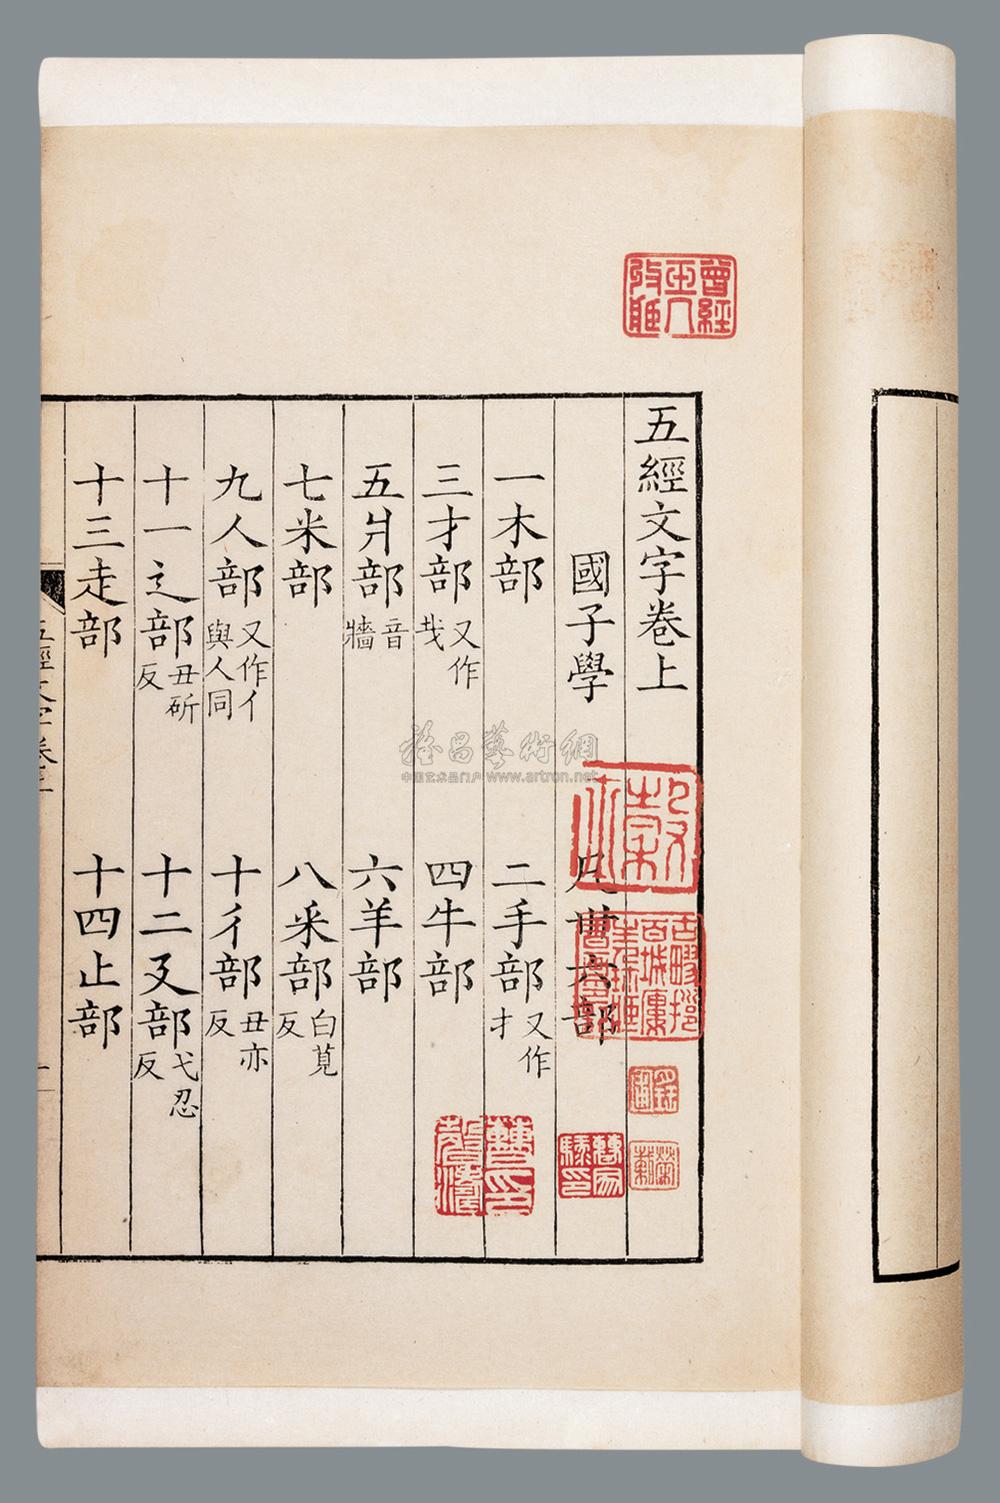 五經文字卷上
國子學 凡 六部
一木部 二手部又作扌
三才部又作 四牛部
五爿部音牆 六羊部
七米部 八釆部白莧反
九人部又作亻與人同 十彳部丑亦反
十一辶部丑斫反 十二廴部弋忍反
十三走部 十四止部
五經文字卷上
曾經
雅昌藝術網
中国艺术品门户 www.artron.net